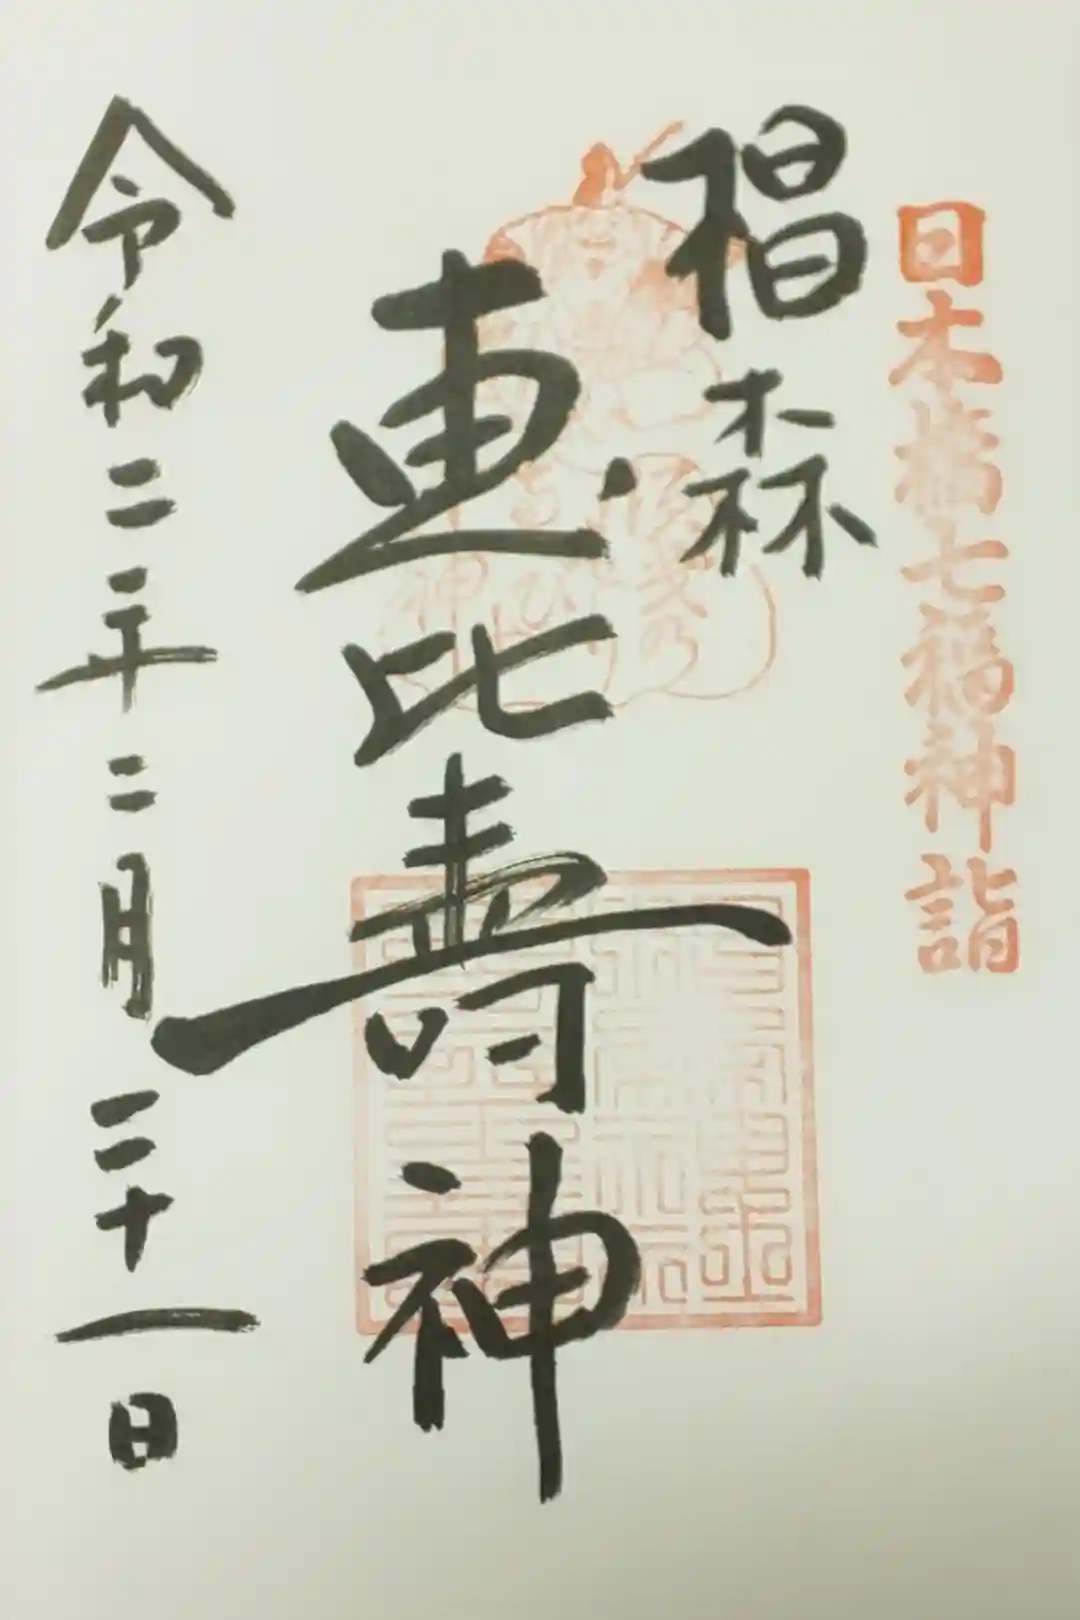 日本橋七福神詣
椙森
恵比壽神
令和二年二月二十一日